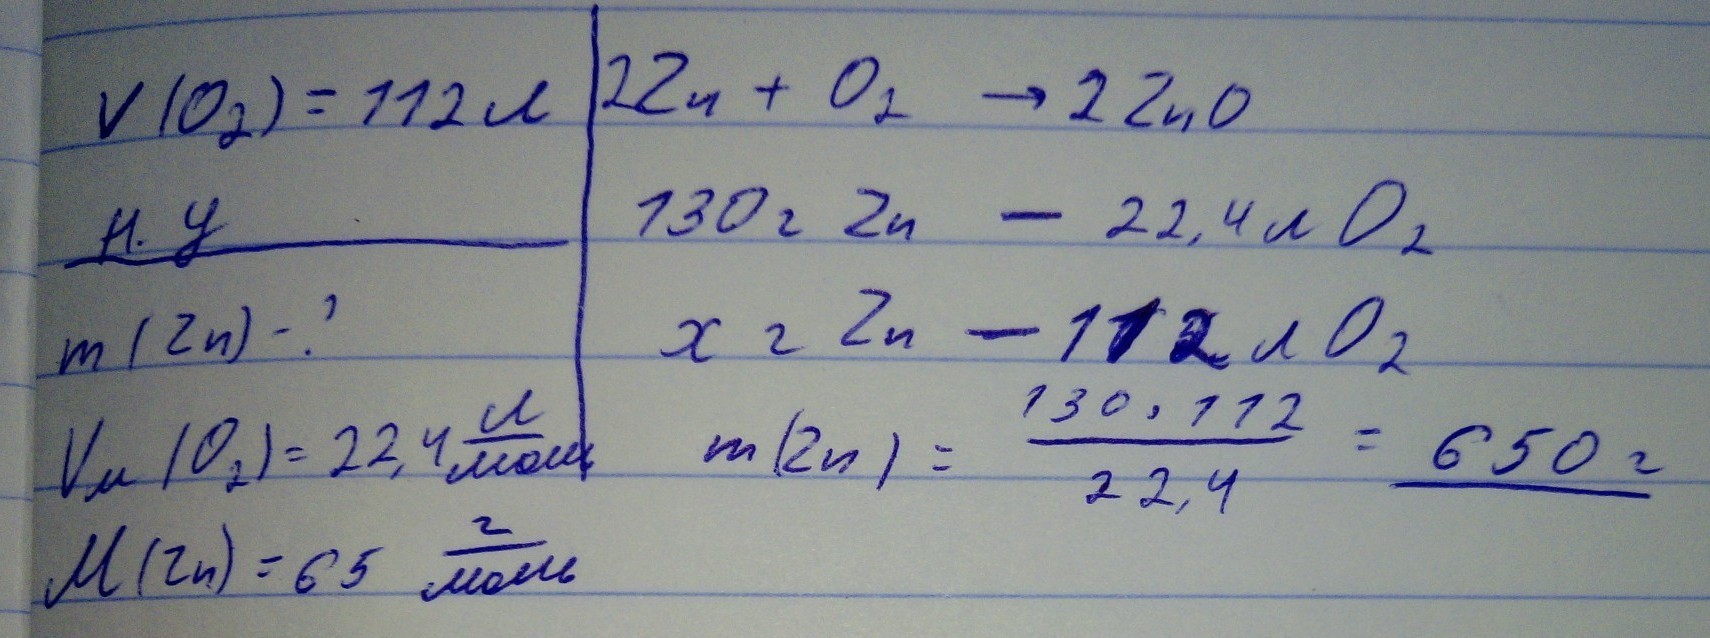 V(O₂) = 112 л
н. у
m(Zn) - ?
Vм(O₂) = 22,4 л/моль
M(Zn) = 65 г/моль
2Zn + O₂ → 2ZnO
130 г Zn — 22,4 л O₂
x г Zn — 112 л O₂
m(Zn) = 130 · 112 / 22,4 = 650 г